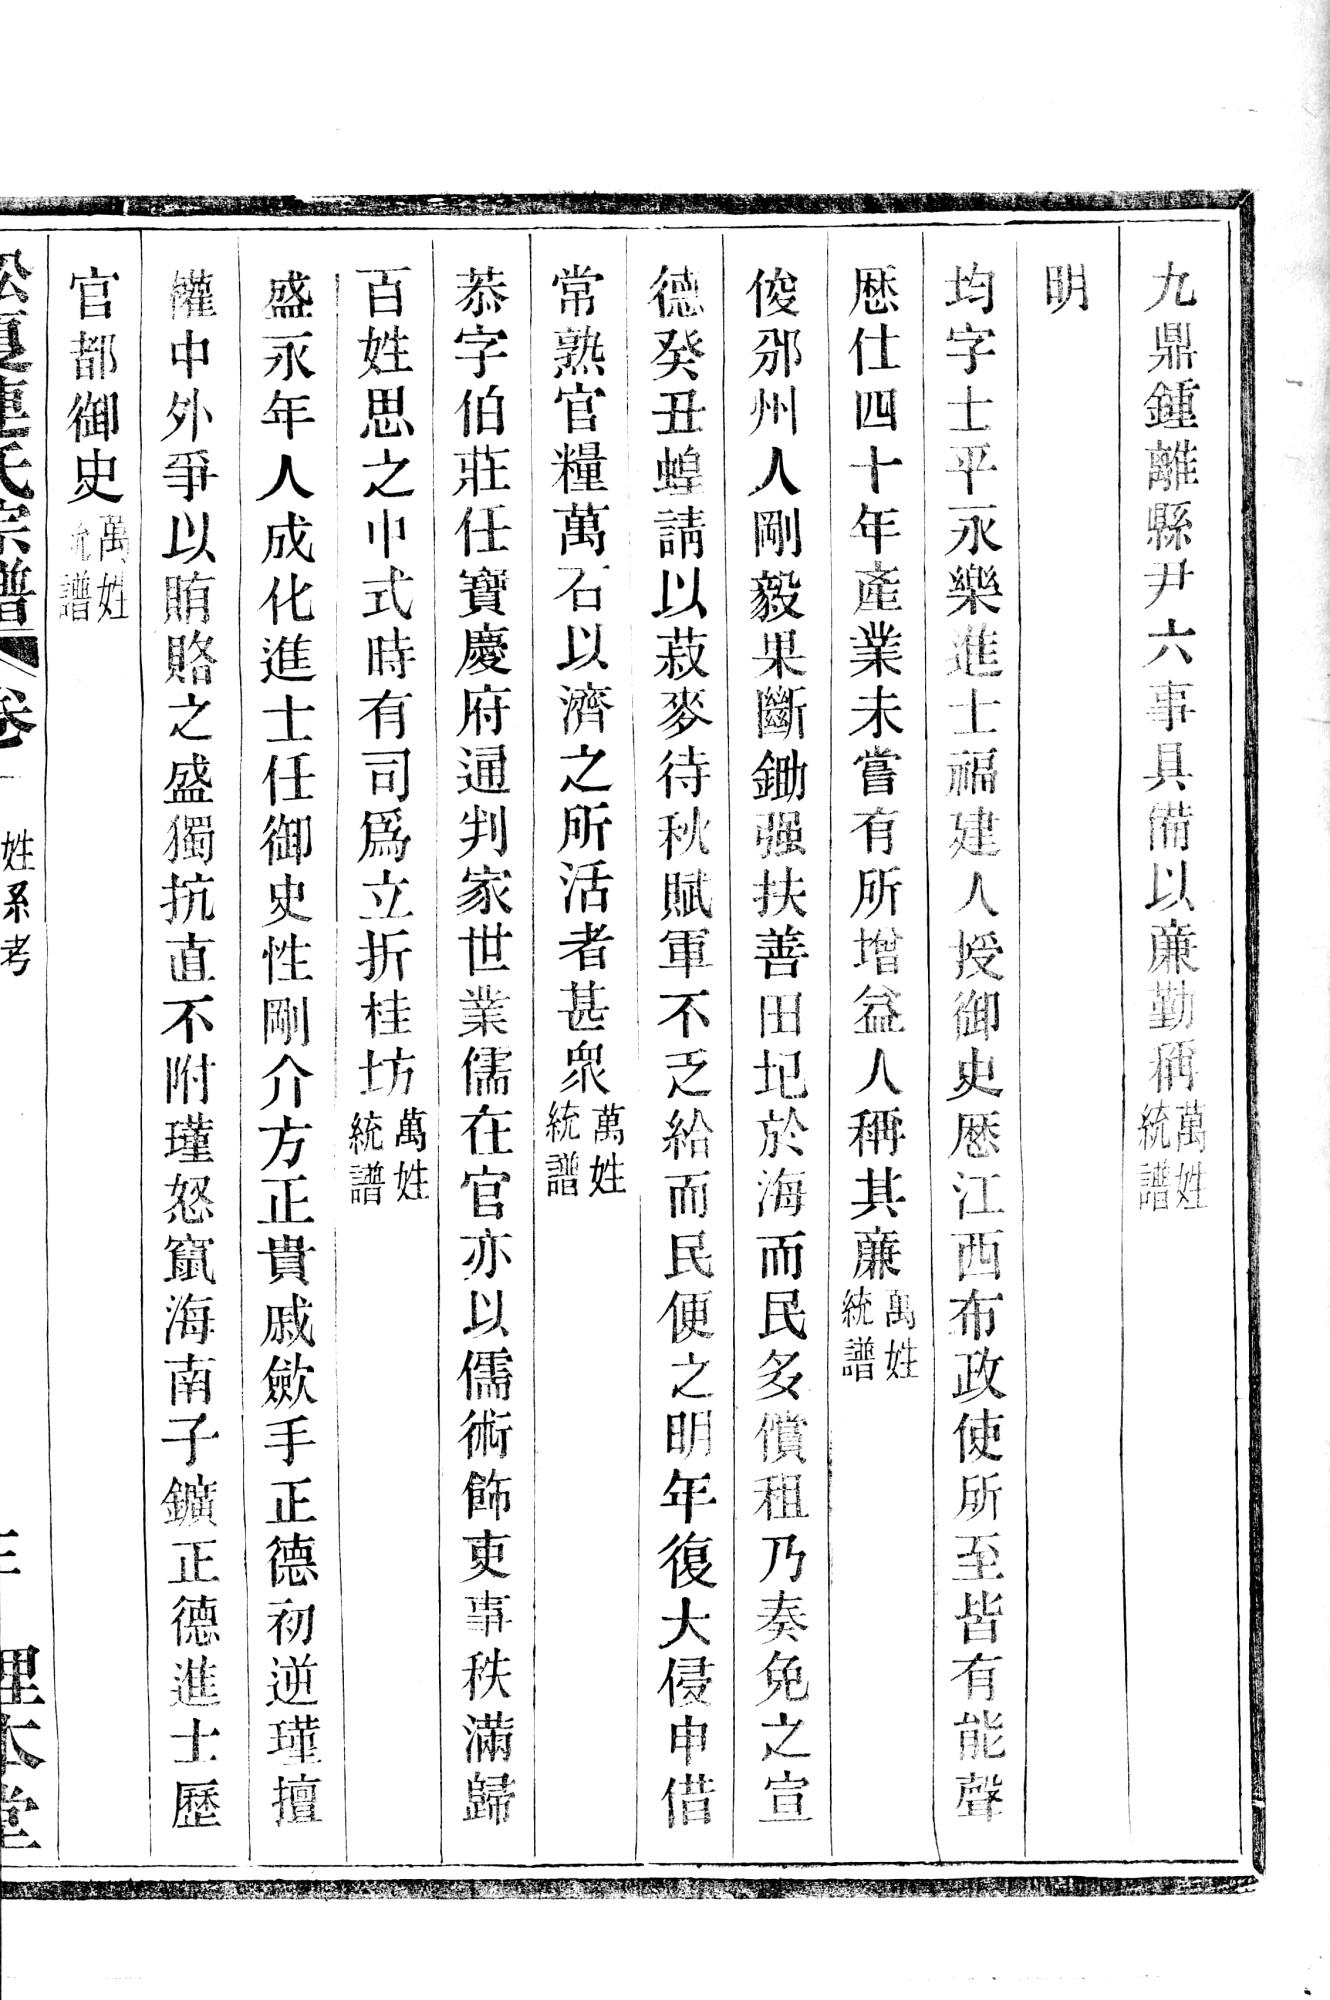 九鼎鍾離縣尹六事具備以廉勤稱萬姓統譜
明
均字士平永樂進士福建人授御史歷江西布政使所至皆有能聲
歷仕四十年產業未嘗有所增益人稱其廉萬姓統譜
俊邠州人剛毅果斷鋤强扶善田圮於海而民多償租乃奏免之宣
德癸丑蝗請以菽麥待秋賦軍不乏給而民便之明年復大侵申借
常熟官糧萬石以濟之所活者甚衆萬姓統譜
恭字伯莊任寶慶府通判家世業儒在官亦以儒術飾吏事秩滿歸
百姓思之巾式時有司爲立折桂坊萬姓統譜
盛永年人成化進士任御史性剛介方正貴戚歛手正德初逆瑾擅
權中外爭以賄賂之盛獨抗直不附瑾怒竄海南子鑛正德進士歷
官都御史萬姓統譜
松夏連氏宗譜 卷一 姓系考 理本堂